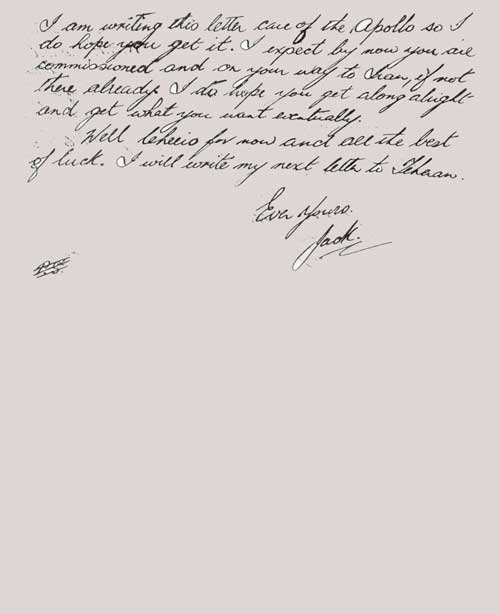 I am writing this letter care of the Apollo so I
do hope you get it. I expect by now you are
commissioned and on your way to Iran, if not
there already. I do hope you get along alright
and get what you want eventually.
Well cheerio for now and all the best
of luck. I will write my next letter to Teheran.
Ever Yours.
Jack.